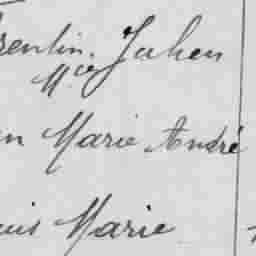 rentin. Julien
Mce
en Marie André
uis Marie